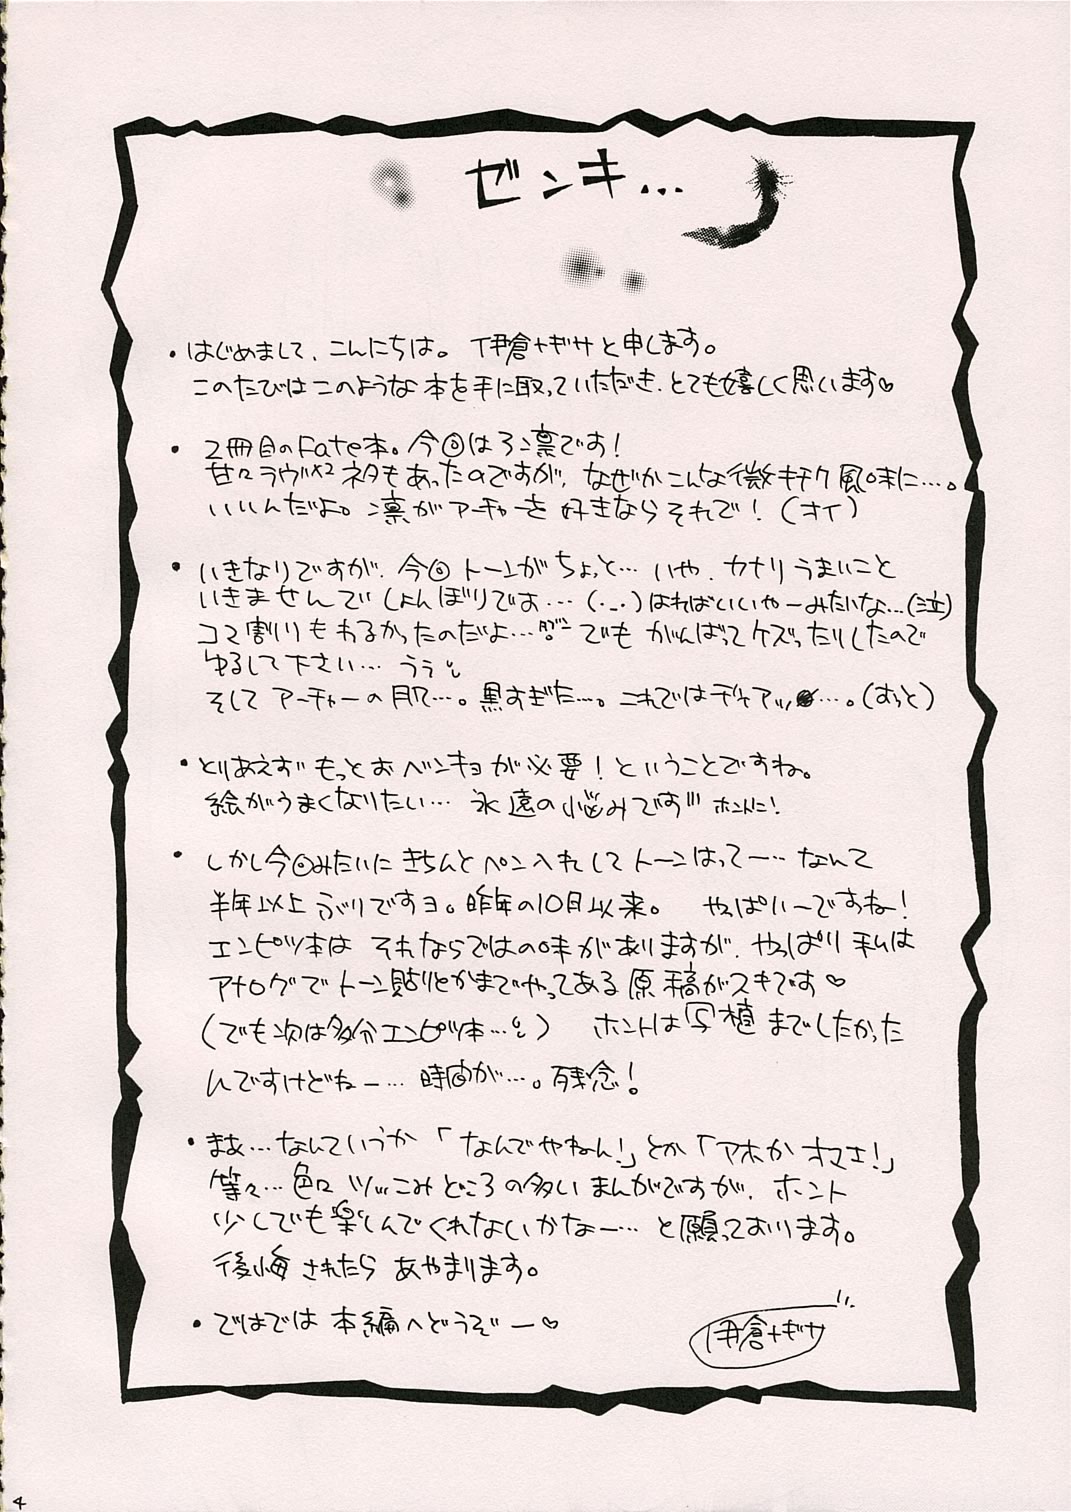 ゼンキ…
・はじめまして、こんにちは。伊倉ナギサと申します。
このたびはこのような本を手に取っていただき、とても嬉しく思います♡
・2冊目のFate本。今回は弓凛です!
甘々ラヴ×2ネタもあったのですが、なぜかこんな微キチク風味に…。
いいんだよ。凛がアーチャーを好きならそれで!(オイ)
・いきなりですが、今回トーンがちょっと…いや、カナリうまいこと
いきませんでしょんぼりです…(・_・)はればいいやーみたいな…(泣)
コマ割りもわるかったのだよ… でもがんばってケズったりしたので
ゆるして下さい…うぅ
そしてアーチャーの肌…。黒すぎた…。これではディアッ…。(おっと)
・とりあえずもっとおベンキョが必要!ということですね。
絵がうまくなりたい…永遠の悩みです ホントに!
・しかし今回みたいにきちんとペン入れしてトーンはってー…なんて
半年以上ぶりですヨ。昨年の10月以来。 やっぱいーですね!
エンピツ本はそれならではの味がありますが、やっぱり私は
アナログでトーン貼りとかまでやってある原稿がスキです♡
(でも次は多分エンピツ本…) ホントは写植までしたかった
んですけどねー…時間が…。残念!
・まぁ…なんていうか「なんでやねん!」とか「アホかオマエ!」
等々…色々ツッこみどころの多いまんがですが、ホント
少しでも楽しんでくれないかなー…と願っております。
後悔されたらあやまります。
・ではでは本編へどうぞー♡
伊倉ナギサ
4